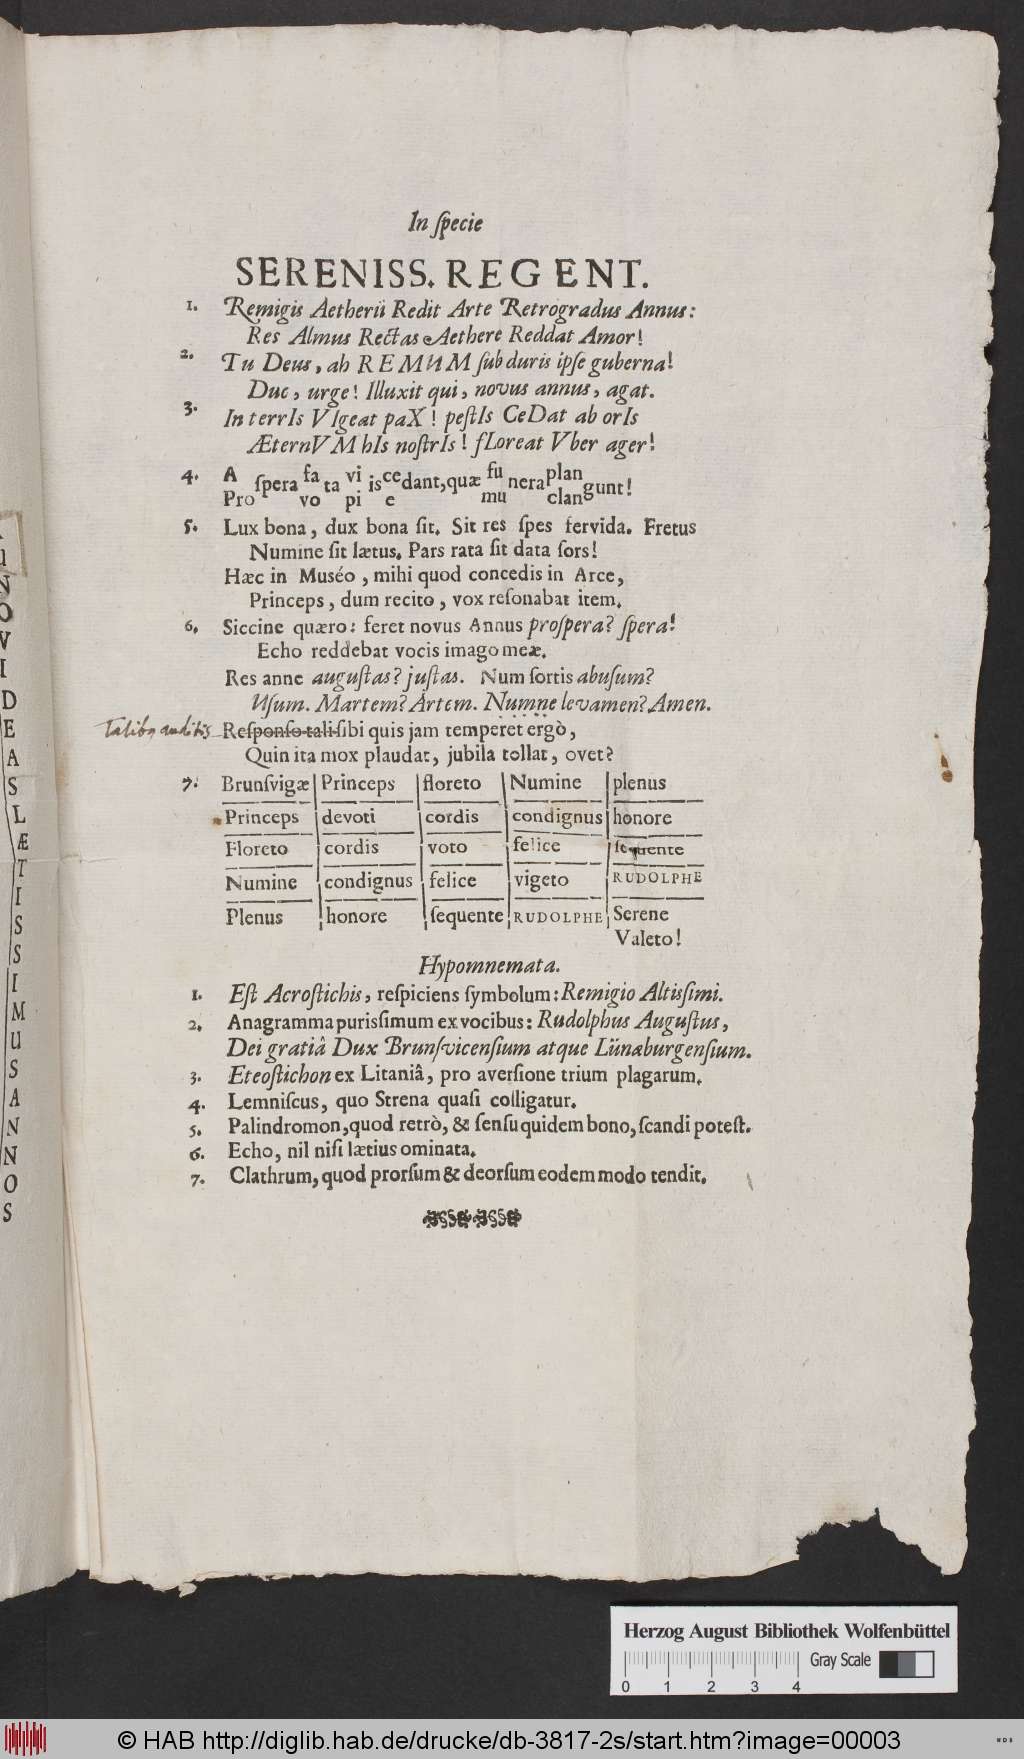 In ſpecie
SERENISS. REGENT.
1. Remigis Aetherii Redit Arte Retrogradus Annus:
Res Almus Rectas Aethere Reddat Amor!
2. Tu Deus, ah REMUM ſub duris ipſe guberna!
Duc, urge! Illuxit qui, novus annus, agat.
3. In terrIs VIgeat paX! peſtIs CeDat ab orIs
ÆternVM hIs noſtrIs! fLoreat Vber ager!
4. A ſpera fa ta vi is ce dant, quæ fu nera plan gunt!
Pro vo pi e mu clan
5. Lux bona, dux bona ſit. Sit res ſpes fervida. Fretus
Numine ſit lætus. Pars rata ſit data ſors!
Hæc in Muséo, mihi quod concedis in Arce,
Princeps, dum recito, vox reſonabat item.
6. Siccine quæro: feret novus Annus proſpera? ſpera!
Echo reddebat vocis imago meæ.
Res anne auguſtas? juſtas. Num ſortis abuſum?
Uſum. Martem? Artem. Numne levamen? Amen.
Talibꝫ auditis Reſponſo tali ſibi quis jam temperet ergò,
Quin ita mox plaudat, jubila tollat, ovet?
7. Brunſvigæ Princeps floreto Numine plenus
Princeps devoti cordis condignus honore
Floreto cordis voto felice ſequente
Numine condignus felice vigeto RUDOLPHE
Plenus honore ſequente RUDOLPHE Serene
Valeto!
Hypomnemata.
1. Eſt Acroſtichis, reſpiciens ſymbolum: Remigio Altiſſimi.
2. Anagramma puriſſimum ex vocibus: Rudolphus Auguſtus,
Dei gratiâ Dux Brunſvicenſium atque Lünæburgenſium.
3. Eteoſtichon ex Litaniâ, pro averſione trium plagarum.
4. Lemniſcus, quo Strena quaſi colligatur.
5. Palindromon, quod retrò, & ſenſu quidem bono, ſcandi poteſt.
6. Echo, nil niſi lætius ominata.
7. Clathrum, quod prorſum & deorſum eodem modo tendit.
U
N
O
V
I
D
E
A
S
L
Æ
T
I
S
S
I
M
U
S
A
N
N
O
S
Herzog August Bibliothek Wolfenbüttel
Gray Scale
0 1 2 3 4
© HAB http://diglib.hab.de/drucke/db-3817-2s/start.htm?image=00003